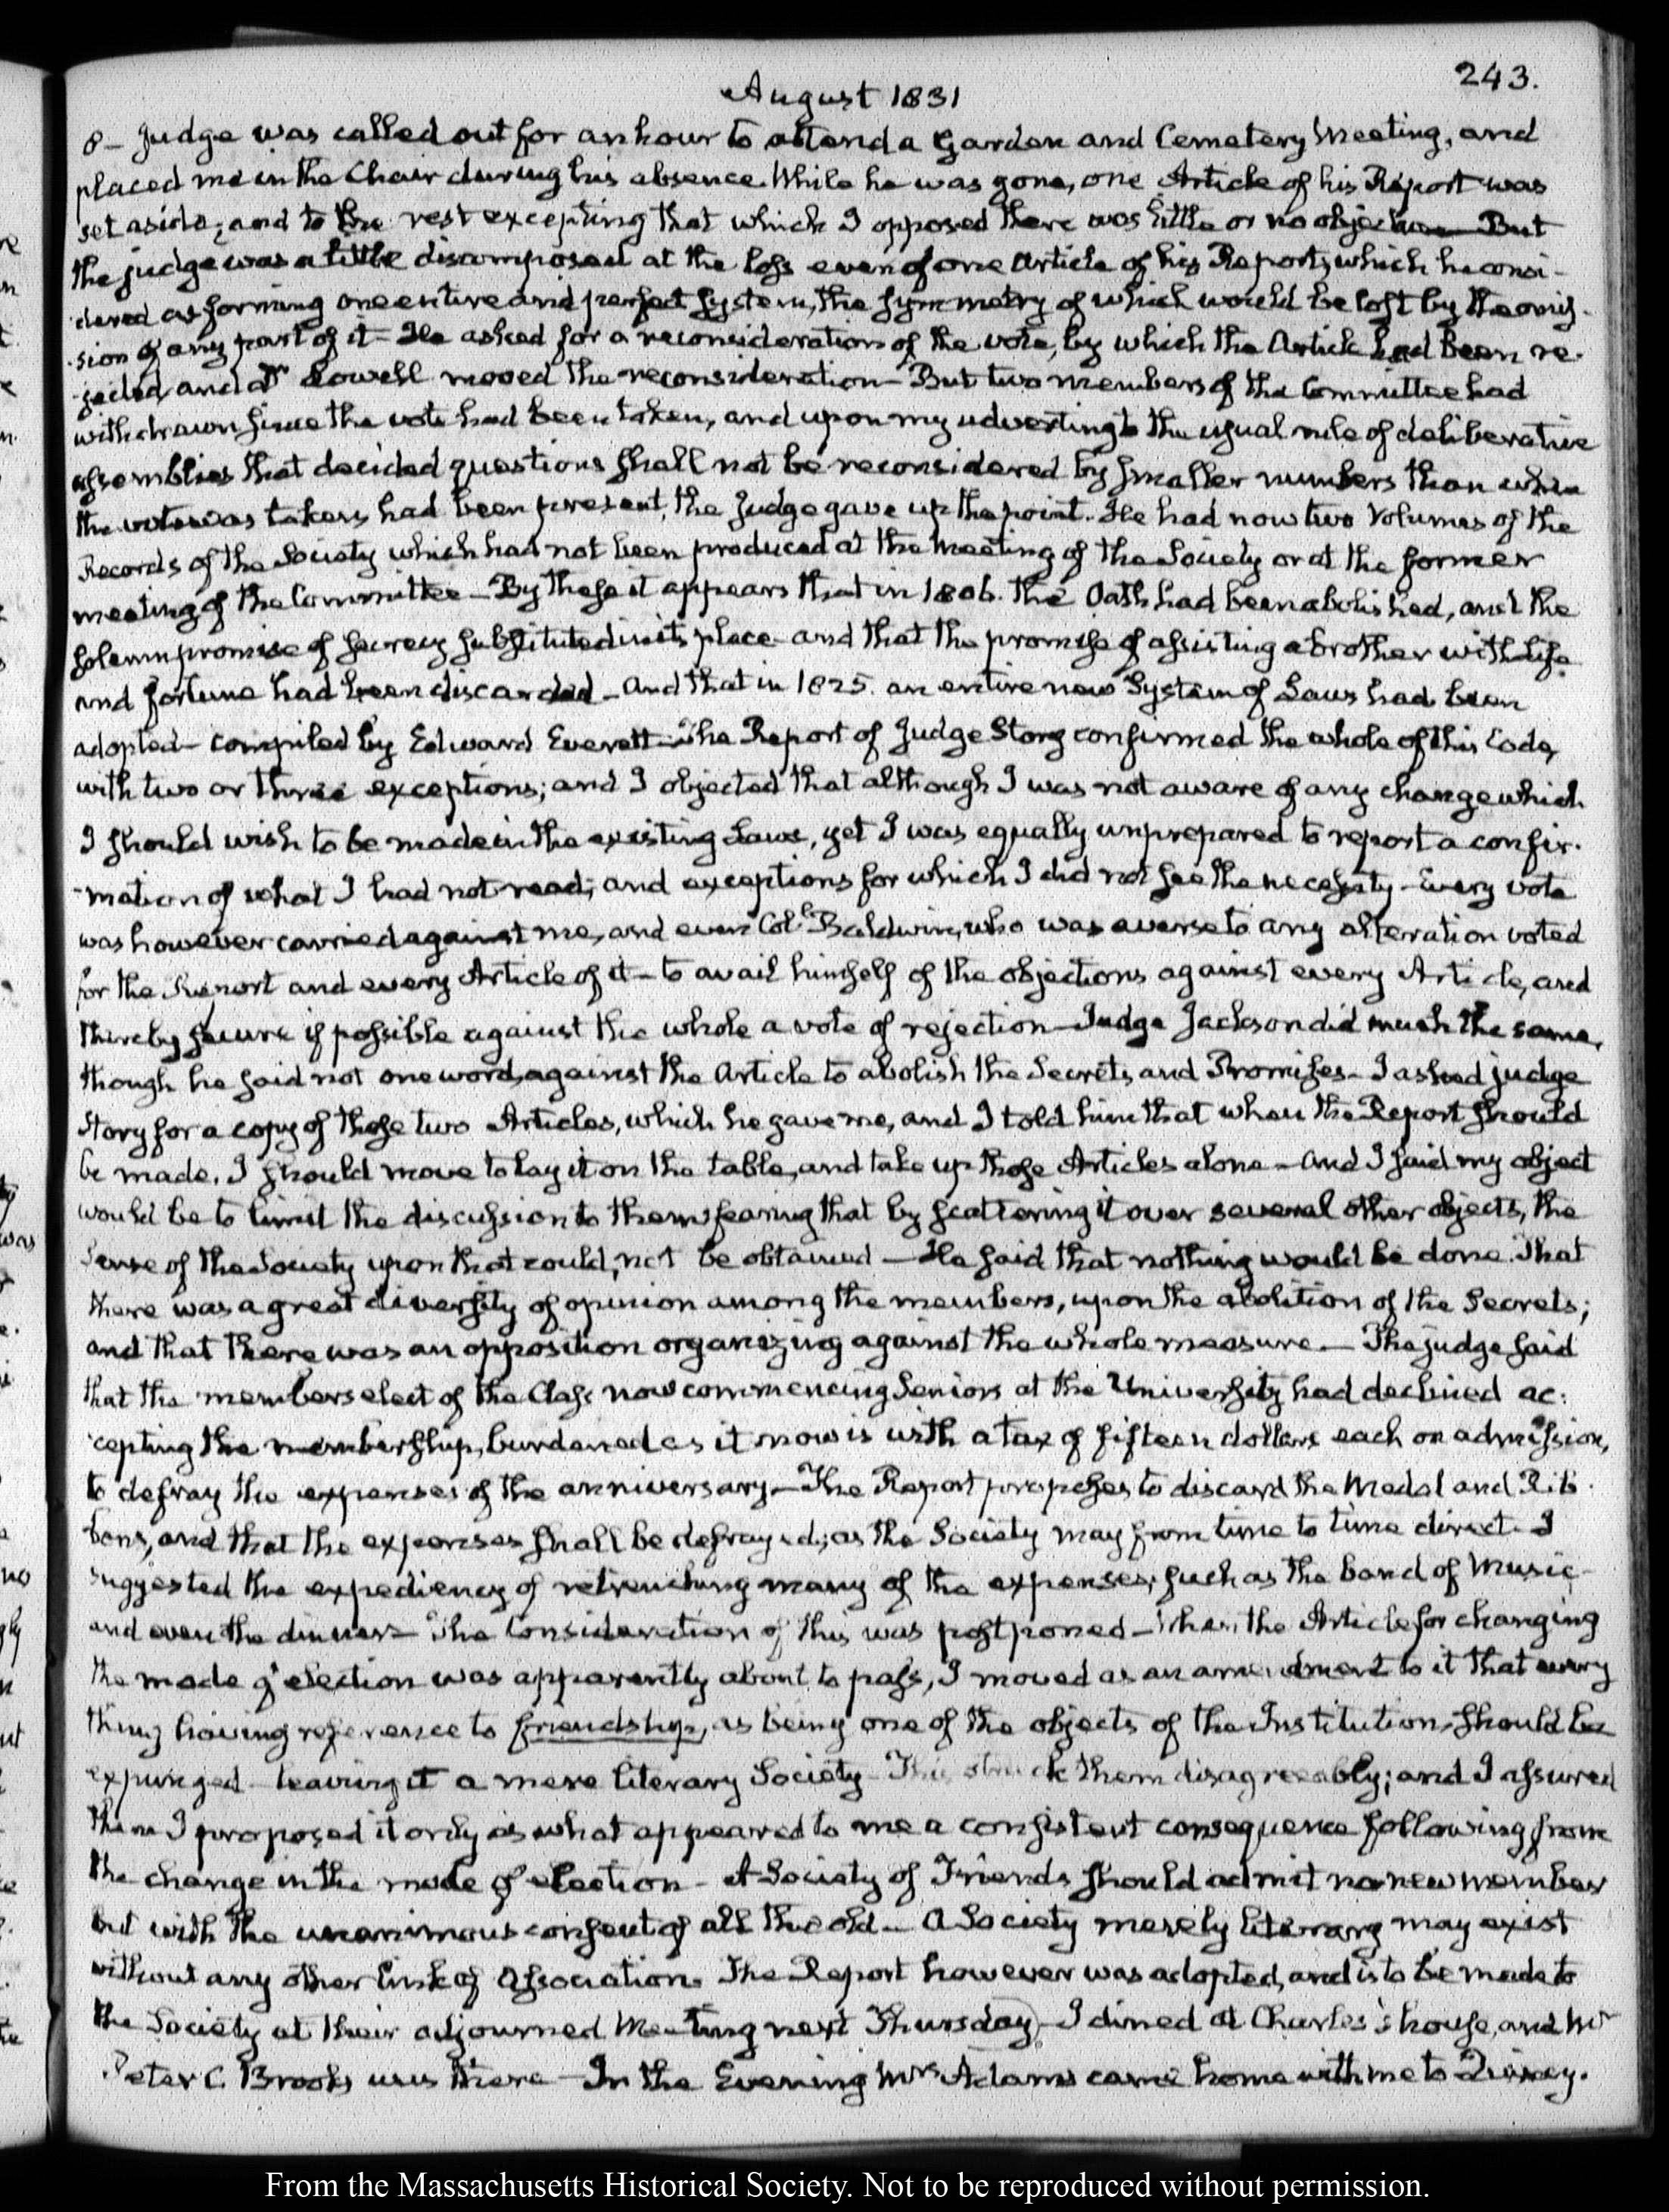 243.
August 1831
8 - Judge was called out for an hour to attend a Garden and Cemetery Meeting, and
placed me in the Chair during his absence. While he was gone, one Article of his Report was
set aside; and to the rest excepting that which I opposed there was little or no objection But
the judge was a little discomposed at the loss even of one Article of his Report, which he consi-
dered as forming one entire and perfect system, the symmetry of which would be lost by the omis-
sion of any part of it - He asked for a reconsideration of the vote, by which the Article had been re-
jected, and Dr Lowell moved the reconsideration - But two members of the Committee had
withdrawn since the vote had been taken, and upon my adverting to the usual rule of deliberative
assemblies that decided questions shall not be reconsidered by smaller numbers than when
the vote was taken had been present, the judge gave up the point. He had now two Volumes of the
Records of the Society which had not been produced at the Meeting of the Society or at the former
meeting of the Committee - By these it appears that in 1806. the Oath had been abolished, and the
solemn promise of secrecy substituted in its place - and that the promise of assisting a brother with life
and fortune had been discarded - And that in 1825. an entire new System of Laws had been
adopted - compiled by Edward Everett - The Report of Judge Story confirmed the whole of this Code,
with two or three exceptions; and I objected that although I was not aware of any change which
I should wish to be made in the existing Laws, yet I was equally unprepared to report a confir-
mation of what I had not read; and exceptions for which I did not see the necessity - Every vote
was however carried against me, and even Coll Baldwin, who was averse to any alteration voted
for the Report and every Article of it - to avail himself of the objections against every Article, and
thereby secure if possible against the whole a vote of rejection - Judge Jackson did much the same,
though he said not one word, against the Article to abolish the Secrets and Promises - I asked judge
Story for a copy of those two Articles, which he gave me, and I told him that when the Report should
be made, I should move to lay it on the table, and take up those Articles alone - And I said my object
would be to limit the discussion to them fearing that by scattering it over several other objects, the
sense of the Society upon that could, not be obtained - He said that nothing would be done. That
there was a great diversity of opinion among the members, upon the abolition of the Secrets;
and that there was an opposition organizing against the whole measure. - The judge said
that the members elect of the Class now commencing Seniors at the University had declined ac-
cepting the membership, burdened as it now is with a tax of fifteen dollars each on admission,
to defray the expenses of the anniversary - The Report proposes to discard the Medal and Rib-
bons, and that the expenses shall be defrayed; as the Society may from time to time direct - I
suggested the expediency of retrenching many of the expenses, such as the band of Music -
and even the dinner - The Consideration of this was postponed - When the Article for changing
the mode of election was apparently about to pass, I moved as an amendment to it that every
thing having reference to friendship, as being one of the objects of the Institution, should be
expunged - leaving it a mere literary Society - This struck them disagreeably; and I assured
them I proposed it only as what appeared to me a consistent consequence following from
the change in the mode of election - A Society of Friends should admit no new member
but with the unanimous consent of all the old - A Society merely literary may exist
without any other link of Association. The Report however was adopted, and is to be made to
the Society at their adjourned Meeting next Thursday - I dined at Charles's house, and Mr
Peter C. Brooks was there - In the Evening Mrs Adams came home with me to Quincy.
From the Massachusetts Historical Society. Not to be reproduced without permission.